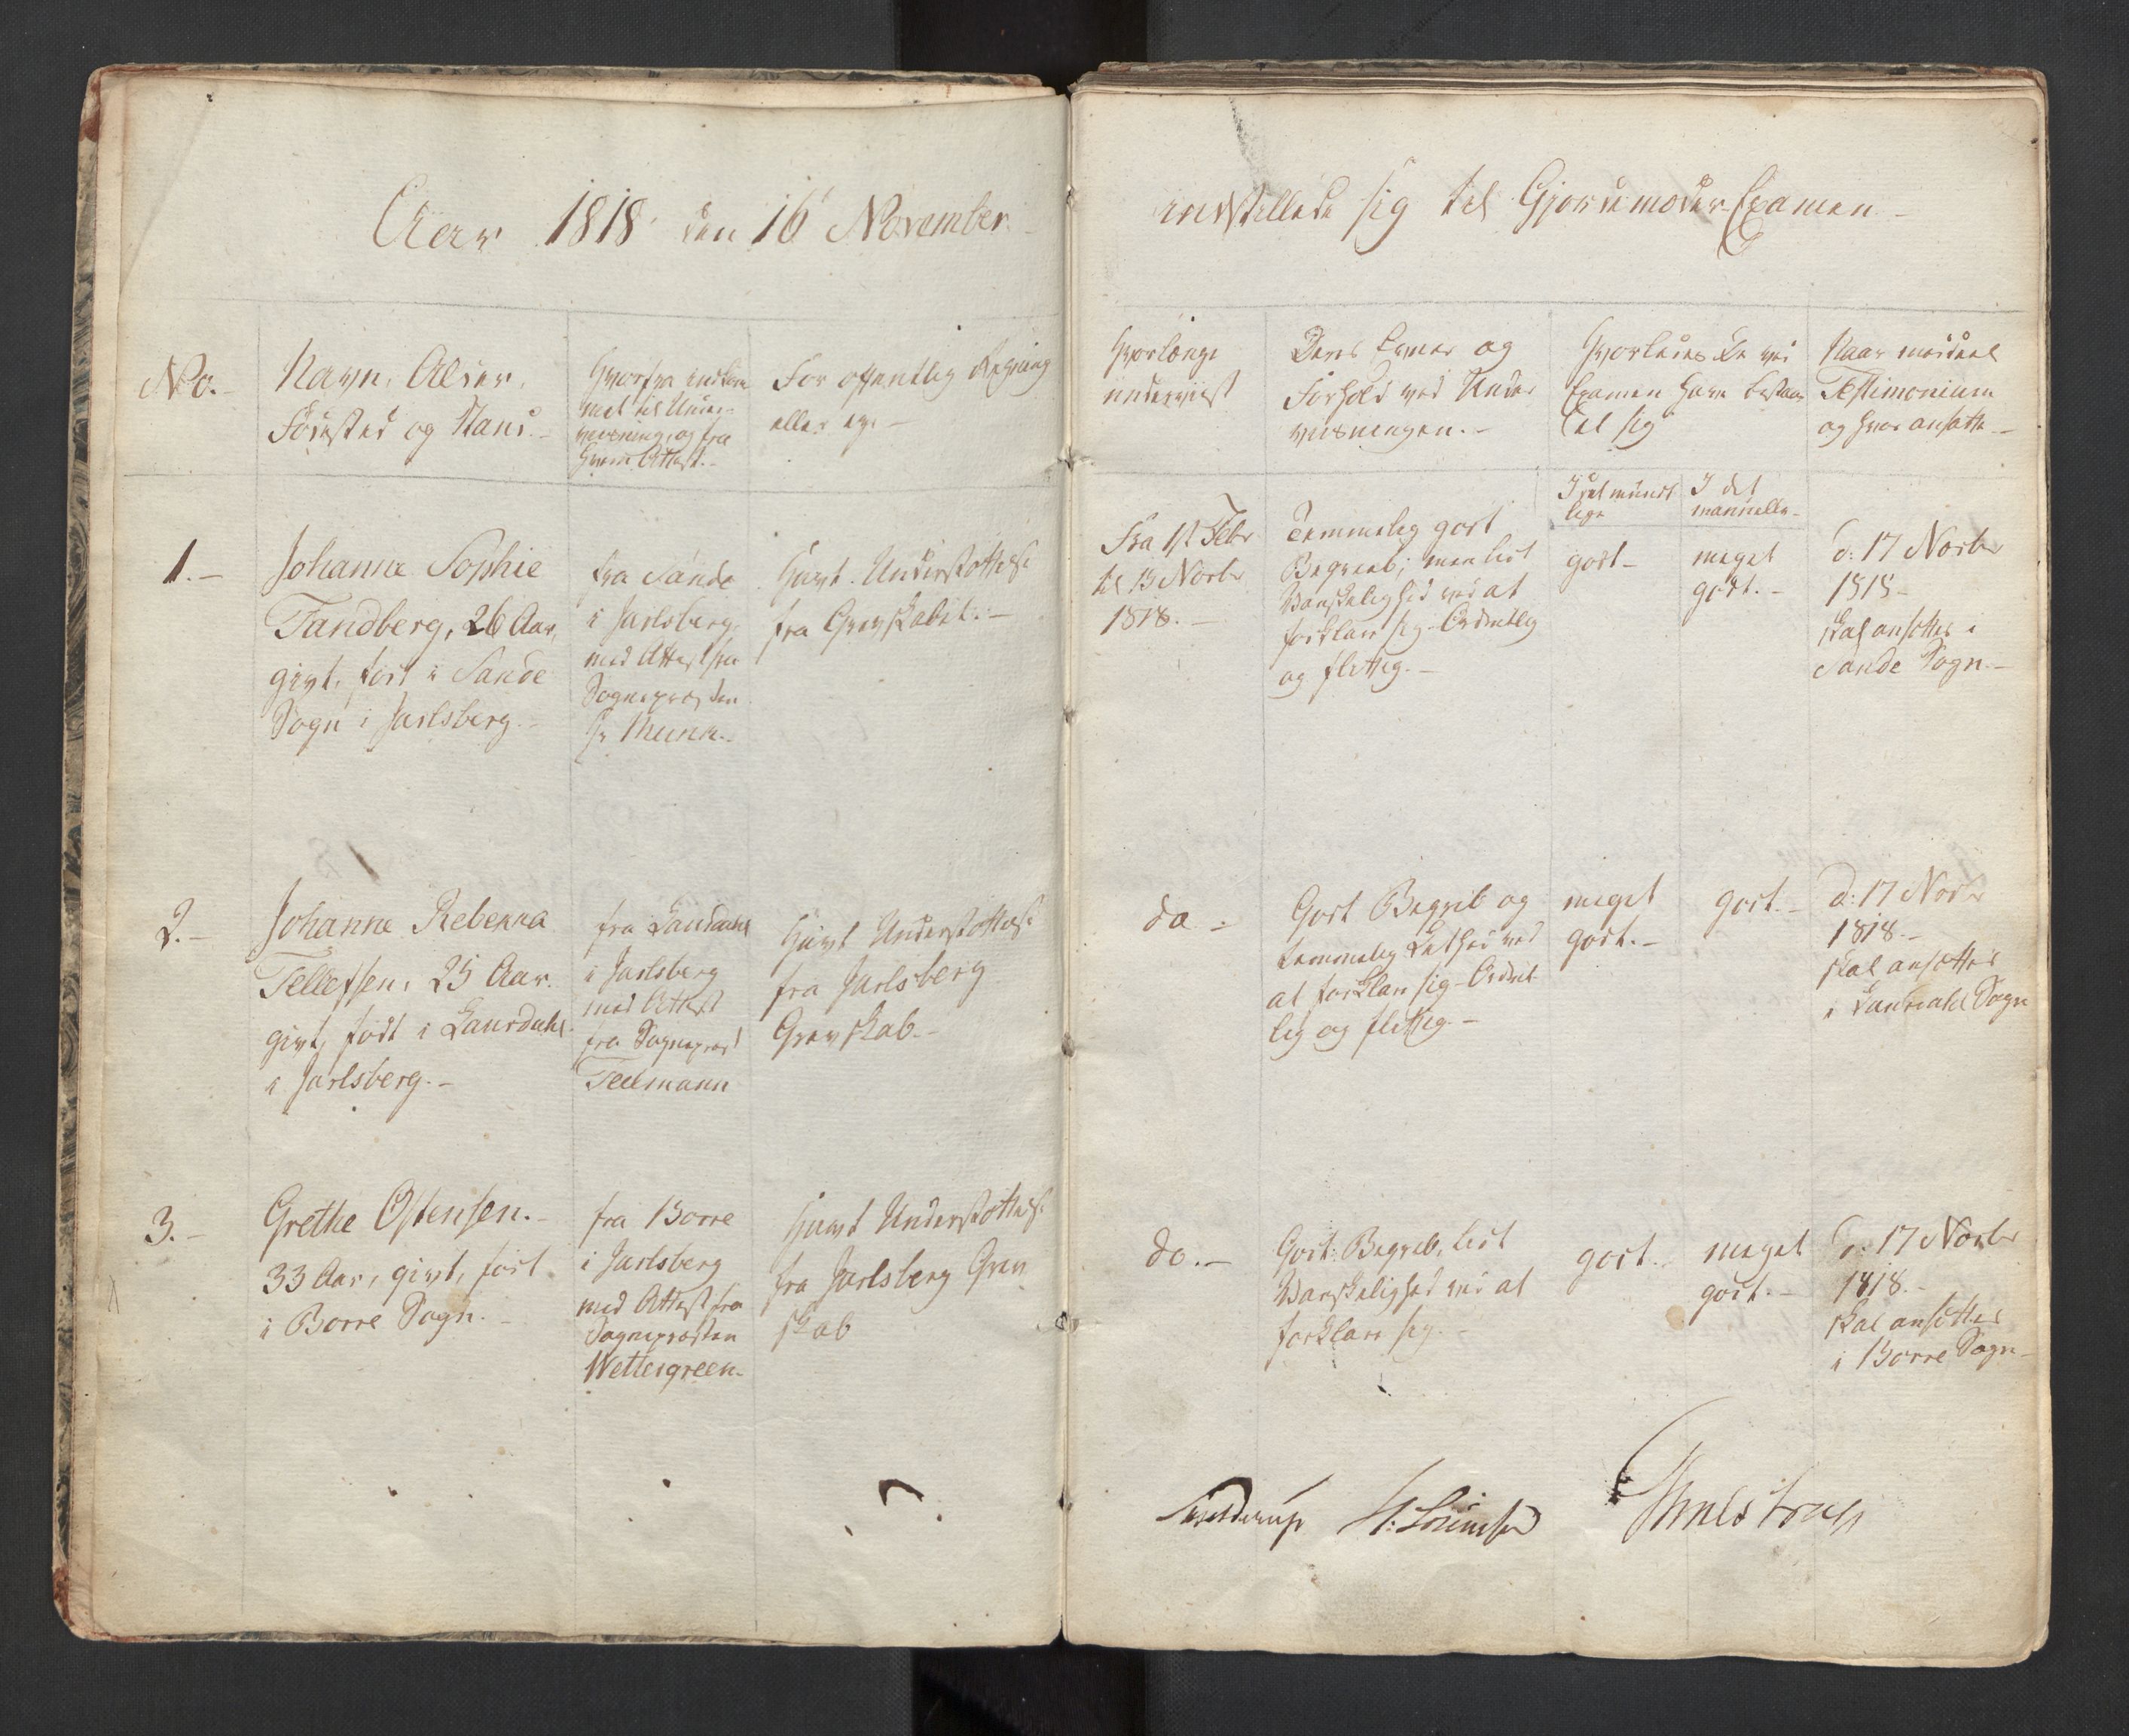 Aar 1818 den 16 November
indstillede sig til Gjordemoder Examen
No.
Navn, Alder,
Fødested og Stand.
Hvorfra indkom
met til Under-
viisning, og fra
hvem Attest.
For offentlig Regning
eller ej.
Hvorlænge
underviist
Deres Evner og
Forhold ved Under
viisningen.
Hvorledes de ved
Examen have bestaa
Naar meddeelt
Testimonium
og hvor ansatte
I det mundt
lige
I det
manuelle
1.
Johanne Sophie
Tandberg, 26 Aar,
givt, født i Sande
Sogn i Jarlsberg.
fra Sande
i Jarlsberg
med Attest fra
Sognepræsten
Hr Munk.
Havt Understøttelse
fra Grevskabet.
Fra 1st Febr
til 13 Novbr
1818.
Temmelig godt
Begreb; men lidt
Vanskelighed ved at
forklare sig. Ordentlig
og flittig.
godt
meget
godt.
d: 17 Novbr
1818
skal ansættes i
Sande Sogn.
2.
Johanne Rebekka
Tellefsen, 25 Aar.
givt, født i Laurdahl
i Jarlsberg.
fra Laurdahl
i Jarlsberg
med Attest
fra Sognepræst
Tellmann
Havt Understøttelse
fra Jarlsberg
Grevskab.
do
Godt Begreb og
temmelig Lethed ved
at forklare sig. Ordent
lig og flittig.
meget
godt.
godt.
d: 17 Novbr
1818.
skal ansættes
i Laurdahl Sogn
3.
Grethe Ostensen.
33 Aar, givt, født
i Borre Sogn.
fra Borre
i Jarlsberg
med Attest fra
Sognepræsten
Wettergreen.
Havt Understøttelse
fra Jarlsberg Grev
skab
do.
Godt Begreb, lidt
Vanskelighed ved at
forklare sig.
godt.
meget
godt.
d: 17 Novbr
1818.
skal ansættes
i Borre Sogn
Skjelderup
Thulstrup